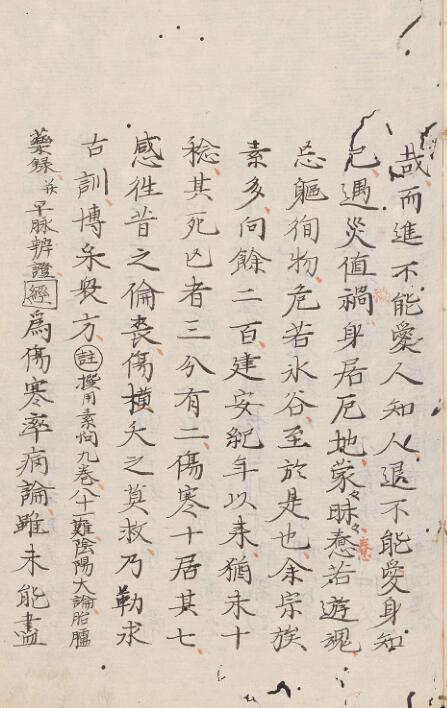 哉而進不能愛人知人退不能愛身知
己遇災值禍身居厄地蒙々昧々惷若遊魂
忘軀徇物危若氷谷至於是也余宗族
素多向餘二百建安紀年以来猶未十
稔其死亡者三分有二傷寒十居其七
感徃昔之倫喪傷橫夭之莫救乃勤求
古訓博采衆方註撰用素問九巻八十一難陰陽大論胎臚
藥錄并平脉辨證經為傷寒卒病論雖未能盡